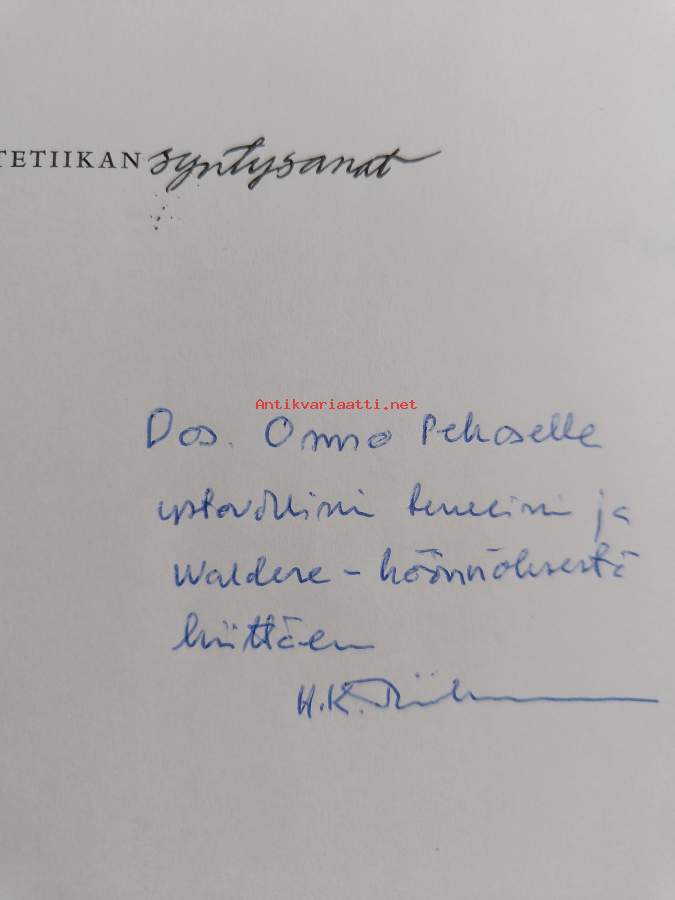 TETIIKAN syntysanat
Antikvariaatti.net
Dos. Osmo Pekoselle
ystävällisin terveisin ja
Waldere-käännöksestä
kiittäen
H.K. Riikonen